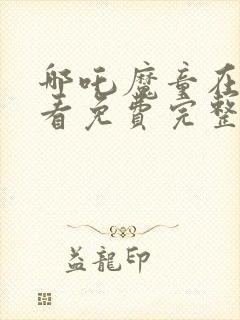 哪吒魔童在
看免费完整
益龍印